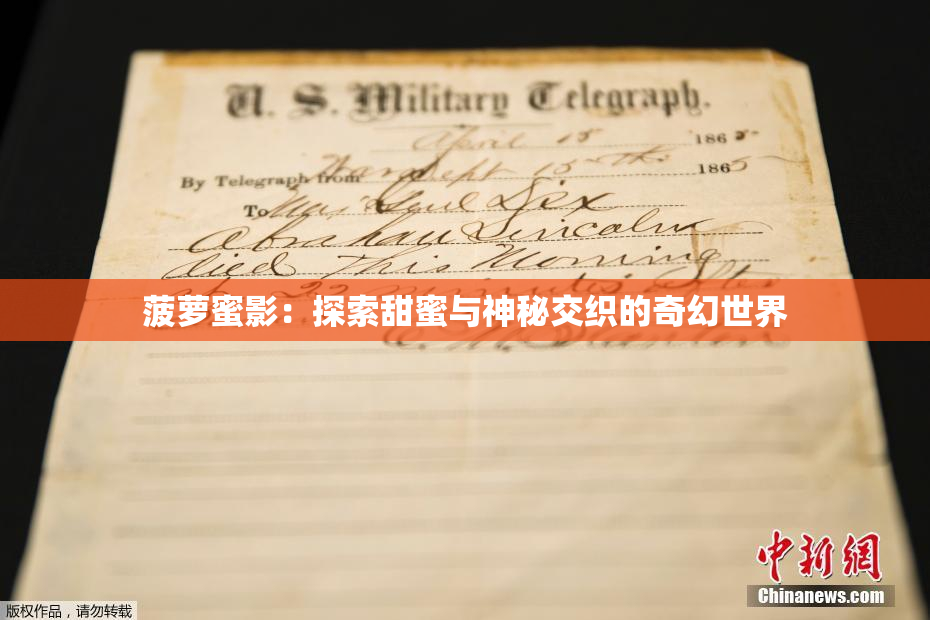 U. S. Military Telegraph.
April 15 1865
By Telegraph from War Dept 15th 1865
To Maj Genl Dix
Abraham Lincoln
died This Morning
at 22 minutes after
菠萝蜜影：探索甜蜜与神秘交织的奇幻世界
E. M. Stanton
中新網
Chinanews.com
版权作品，请勿转载